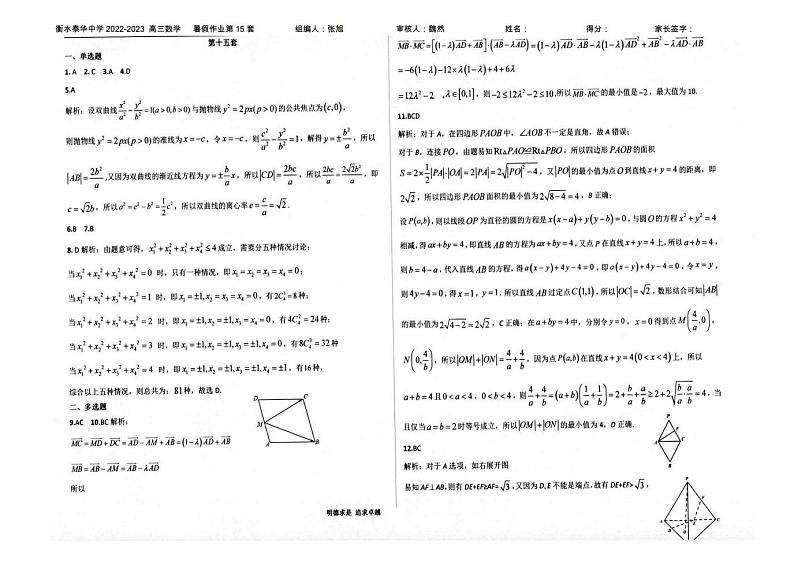 衡水泰华中学 2022-2023 高三数学 暑假作业第 15 套 组编人：张旭 审核人：魏然 姓名： 得分： 家长签字：
第十五套
一、单选题
1. A 2. C 3. A 4.D
5.A
解析：设双曲线 x²/a² − y²/b² = 1(a>0,b>0) 与抛物线 y² = 2px(p>0) 的公共焦点为 (c,0)，
则抛物线 y² = 2px(p>0) 的准线为 x = −c，令 x = −c，则 c²/a² − y²/b² = 1，解得 y = ± b²/a，所以
|AB| = 2b²/a，又因为双曲线的渐近线方程为 y = ± b/a x，所以 |CD| = 2bc/a，所以 2bc/a = 2√2b²/a，即
c = √2b，所以 a² = c² − b² = 1/2 c²，所以双曲线的离心率 e = c/a = √2.
6.B 7.B
8. D 解析：由题意可得，x₁² + x₂² + x₃² + x₄² ≤ 4 成立，需要分五种情况讨论：
当 x₁² + x₂² + x₃² + x₄² = 0 时，只有一种情况，即 x₁ = x₂ = x₃ = x₄ = 0；
当 x₁² + x₂² + x₃² + x₄² = 1 时，即 x₁ = ±1, x₂ = x₃ = x₄ = 0，有 2C₄¹ = 8 种；
当 x₁² + x₂² + x₃² + x₄² = 2 时，即 x₁ = ±1, x₂ = ±1, x₃ = x₄ = 0，有 4C₄² = 24 种；
当 x₁² + x₂² + x₃² + x₄² = 3 时，即 x₁ = ±1, x₂ = ±1, x₃ = ±1, x₄ = 0，有 8C₄³ = 32 种
当 x₁² + x₂² + x₃² + x₄² = 4 时，即 x₁ = ±1, x₂ = ±1, x₃ = ±1, x₄ = ±1，有 16 种，
综合以上五种情况，则总共为：81 种，故选 D.
二、多选题
9.AC 10.BC 解析：
MC = MD + DC = AD − AM + AB = (1−λ)AD + AB
MB = AB − AM = AB − λAD
所以
D C M A B
MB · MC = [(1−λ)AD + AB] · (AB − λAD) = (1−λ)AD · AB − λ(1−λ)AD² + AB² − λAB · AD
= −6(1−λ) − 12×λ(1−λ) + 4 + 6λ
= 12λ² − 2 ，λ∈[0,1]，则 −2 ≤ 12λ² − 2 ≤ 10，所以 MB · MC 的最小值是 −2，最大值为 10.
11.BCD
解析：对于 A，在四边形 PAOB 中，∠AOB 不一定是直角，故 A 错误；
对于 B，连接 PO，由题易知 Rt△PAO≌Rt△PBO，所以四边形 PAOB 的面积
S = 2×1/2|PA|·|OA| = 2|PA| = 2√(|PO|² − 4)，又 |PO| 的最小值为点 O 到直线 x + y = 4 的距离，即
2√2，所以四边形 PAOB 面积的最小值为 2√(8−4) = 4，B 正确；
设 P(a,b)，则以线段 OP 为直径的圆的方程是 x(x−a) + y(y−b) = 0，与圆 O 的方程 x² + y² = 4
相减，得 ax + by = 4，即直线 AB 的方程为 ax + by = 4，又点 P 在直线 x + y = 4 上，所以 a + b = 4，
则 b = 4 − a，代入直线 AB 的方程，得 a(x−y) + 4y − 4 = 0，即 a(x−y) + 4y − 4 = 0，令 x = y，
则 4y − 4 = 0，得 x = 1，y = 1，所以直线 AB 过定点 C(1,1)，所以 |OC| = √2，数形结合可知 |AB|
的最小值为 2√(4−2) = 2√2，C 正确；在 a + by = 4 中，分别令 y = 0，x = 0 得到点 M(4/a, 0)，
N(0, 4/b)，所以 |OM| + |ON| = 4/a + 4/b，因为点 P(a,b) 在直线 x + y = 4(0 < x < 4) 上，所以
a + b = 4 且 0 < a < 4，0 < b < 4，则 4/a + 4/b = (a+b)(1/a + 1/b) = 2 + b/a + a/b ≥ 2 + 2√(b/a · a/b) = 4，当
且仅当 a = b = 2 时等号成立，所以 |OM| + |ON| 的最小值为 4，D 正确.
12.BC
解析：对于 A 选项，如右展开图
易知 AF⊥AB，则有 DE+EF≥AF= √3，又因为 D, E 不能是端点，故有 DE+EF> √3，
明德求是 追求卓越